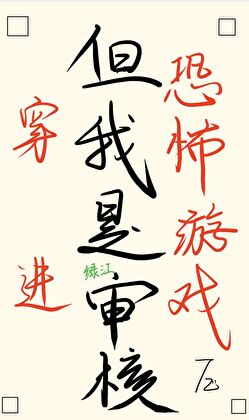 穿进
恐怖游戏
但我是绿江审核